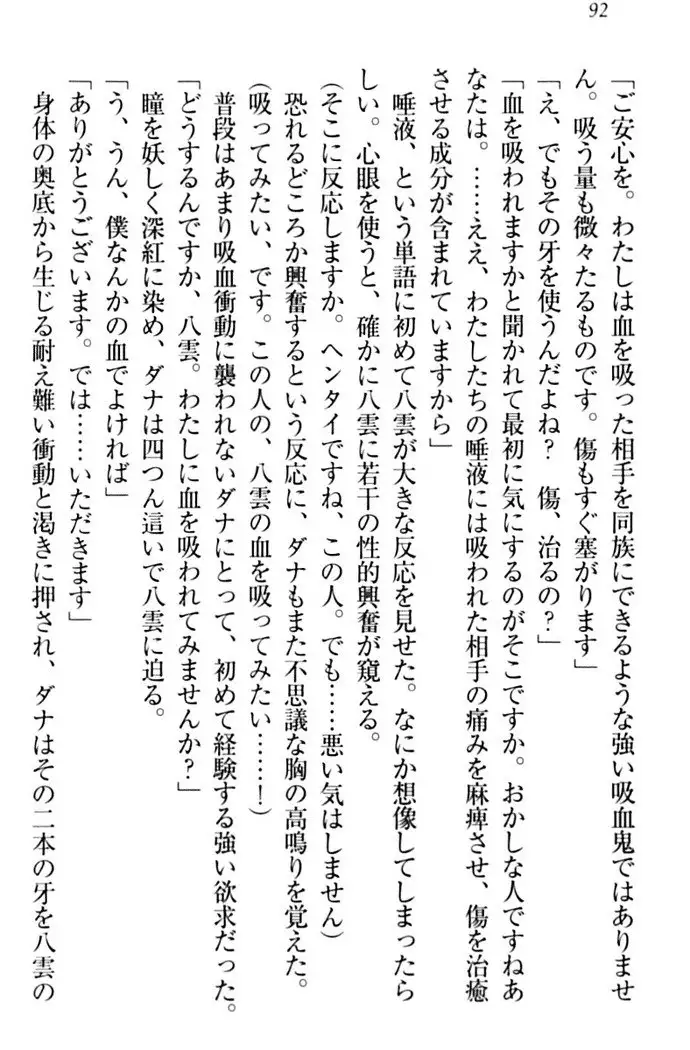 92
「ご安心を。わたしは血を吸った相手を同族にできるような強い吸血鬼ではありませ
ん。吸う量も微々たるものです。傷もすぐ塞がります」
「え、でもその牙を使うんだよね？　傷、治るの？」
「血を吸われますかと聞かれて最初に気にするのがそこですか。おかしな人ですねあ
なたは。……ええ、わたしたちの唾液には吸われた相手の痛みを麻痺させ、傷を治癒
させる成分が含まれていますから」
　唾液、という単語に初めて八雲が大きな反応を見せた。なにか想像してしまったら
しい。心眼を使うと、確かに八雲に若干の性的興奮が窺える。
（そこに反応しますか。ヘンタイですね、この人。でも……悪い気はしません）
　恐れるどころか興奮するという反応に、ダナもまた不思議な胸の高鳴りを覚えた。
（吸ってみたい、です。この人の、八雲の血を吸ってみたい……！）
　普段はあまり吸血衝動に襲われないダナにとって、初めて経験する強い欲求だった。
「どうするんですか、八雲。わたしに血を吸われてみませんか？」
　瞳を妖しく深紅に染め、ダナは四つん這いで八雲に迫る。
「う、うん、僕なんかの血でよければ」
「ありがとうございます。では……いただきます」
　身体の奥底から生じる耐え難い衝動と渇きに押され、ダナはその二本の牙を八雲の